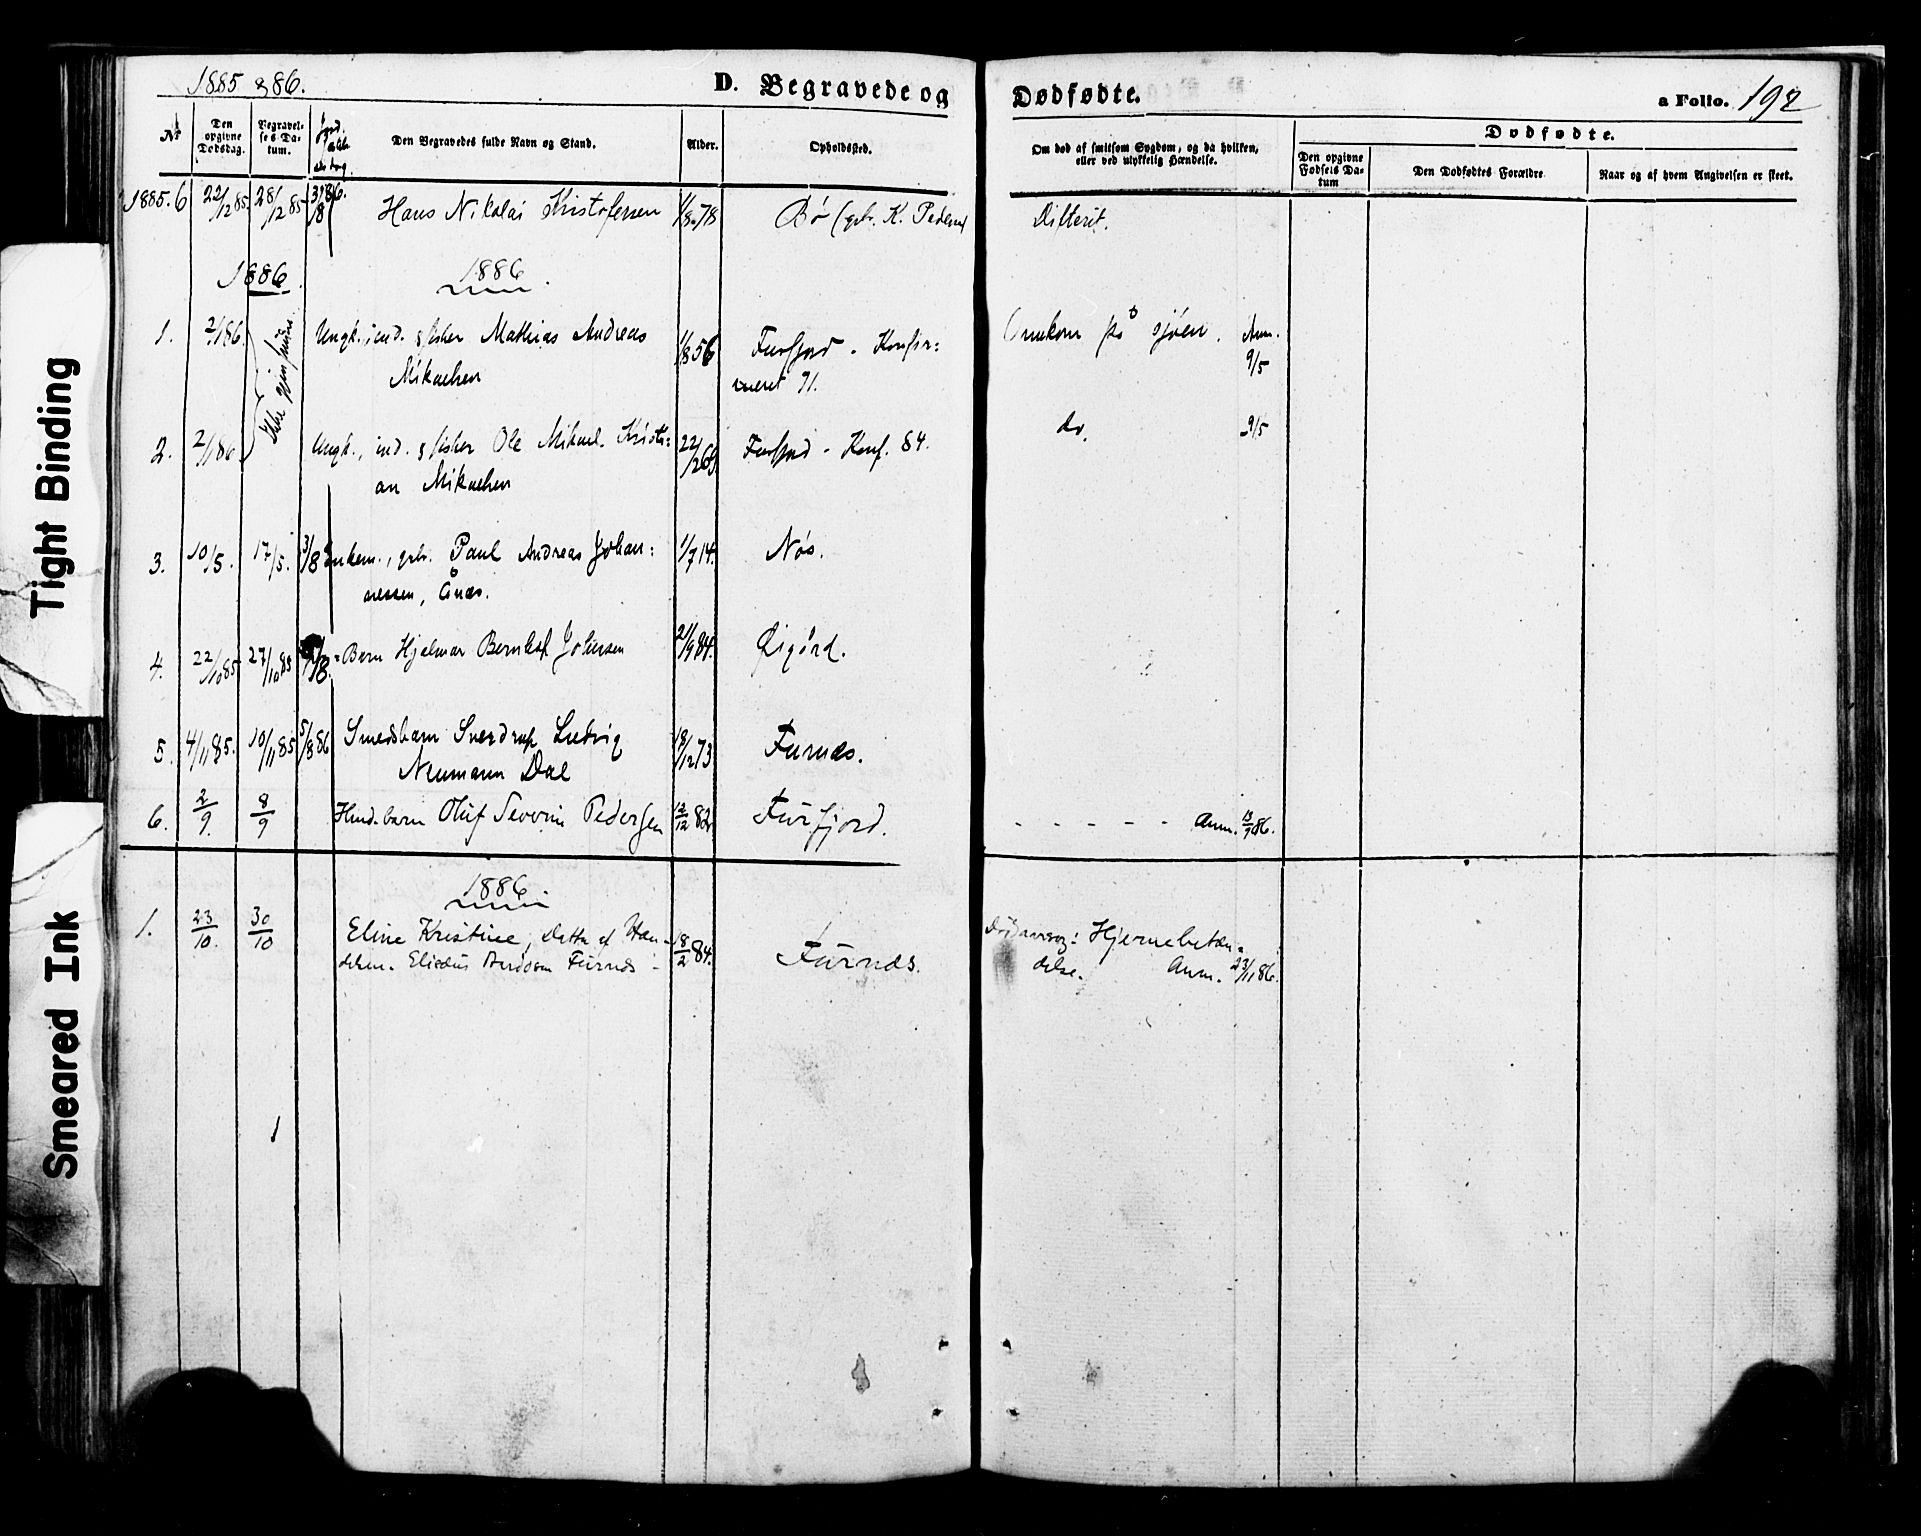 1885 & 86.
D. Begravede og Dødfødte.
a Folio. 192
No
Den opgivne Dødsdag.
Begravelses Datum.
Jord.
Den Begravedes fulde Navn og Stand.
Alder.
Opholdssted.
Om død af smitsom Sygdom, og da hvilken, eller ved ulykkelig Hændelse.
Dødfødte.
Den opgivne Fødsels Datum
Den Dødfødtes Forældre
Naar og af hvem Angivelsen er skeet.
1885. 6 22/12 85 28/12 85 3/8 86. Hans Nikolai Kristofersen 1/8 78 Bø (gbr. K. Pedersen Difterit.
1886 1886
1. 2/1 86 Ungk., ind. & fisker Mathias Andreas 1/8 56 Furfjord - Konfir= Omkom på sjøen. Anm.
Mikaelsen meret 71. 9/5
Ikke gjenfunden
2. 2/1 86. Ungk., ind. & fisker Ole Mikael Kristi= 22/2 69 Furfjord - Konf. 84. do. 9/5
an Mikaelsen
3. 10/5. 17/5. 3/8 Enkem., gbr. Paul Andreas Johan= 1/7 14. Nøs.
nessen, Ånæs.
4. 22/10 85 27/10 85 /8. Barn Hjelmar Bernhof Johnsen 21/9 84.
5. 4/11 85. 10/11 85 5/8 86 Smedsbarn Sverdrup Ludvig 18/12 73 Furnæs.
Neumann Dal
6. 2/9 8/9 Husmdsbarn Oluf Severin Pedersen 12/12 82 Furfjord. - - - - - - Anm. 13/9 86.
1886
1. 23/10. 30/10 Eline Kristine, Datter af Han- 18/2 84. Furnæs. Dødsaarsag: Hjernebetæn-
delsm. Elisæus Andorsen Furnæs - delse. Anm. 23/11 86.
1
Tight Binding
Smeared Ink